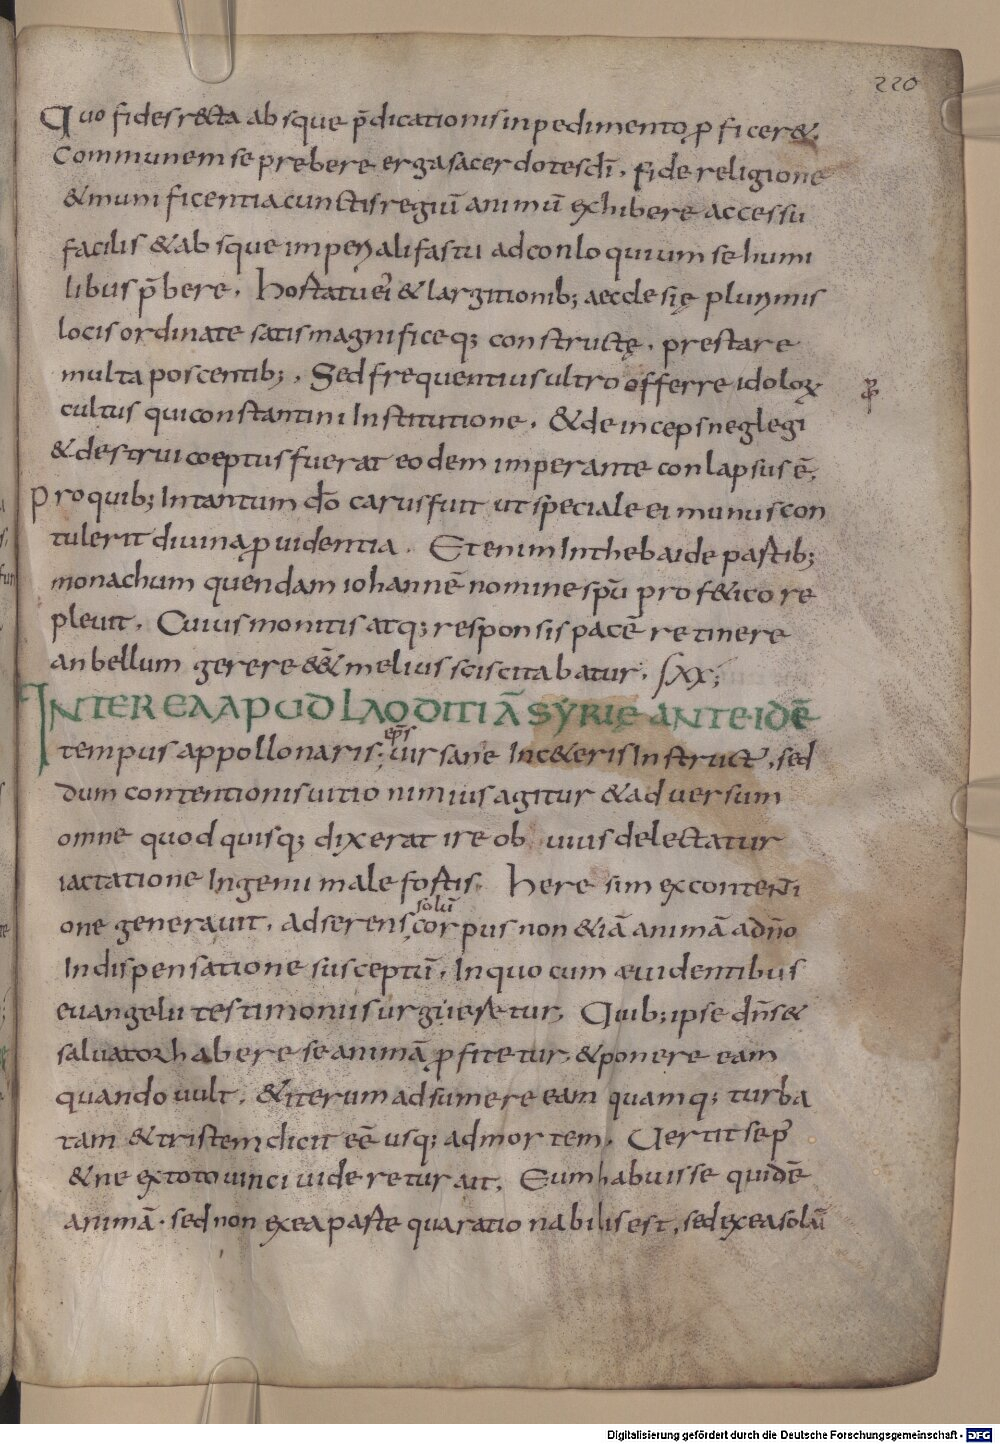 220
Quo fides r&cta absque p̄dicationis inpedimento ꝓficer&.
Communem se prebere erga sacerdotes dī. fide religione
& munificentia cunctis regiū animū exhibere accessu
facilis & absque imperiali fastu ad conloquium se humi
libus p̄bere. Hostatueri & largitionib; aecclesię plurimis
locis ordinate satis magnificeq; constructę. prestare
multa poscentib;. Sed frequentius ultro offerre idoloꝝ
cultus qui constantini Institutione. & deinceps neglegi
& destrui coeptus fuerat eodem imperante conlapsus ē.
Pro quib; Intantum dō carus fuit ut speciale ei munus con
tulerit diuina ꝓuidentia. Etenim In thebaide partib;
monachum quendam iohannē nomine spū prof&ico re
pleuit. Cuius monitis atq; responsis pacē retinere
an bellum gerere &&melius sciscitabatur. XX;
INTEREA APUD LAODITIĀ SYRIĘ ANTE IDĒ
eps̄
tempus appollonaris; uir sane Inc&eris Instruct', sed
dum contentionis uitio nimius agitur & aduersum
omne quod quisq; dixerat ire ob uius delectatur
iactatione Ingenii male fortis. Heresim ex contenti
solū
one generauit. adserens corpus non &iā animā a dn̄o
In dispensatione susceptū. In quo cum æuidentibus
euangelii testimoniis urgueretur. Quib; ipse dn̄s &
saluator habere se animā ꝓfitetur. & ponere eam
quando uult. & iterum adsumere eam quamq; turba
tam & tristem dicit eē usq; ad mortem. Uertit se p'
& ne ex toto uinci uideretur ait. Eum habuisse quidē
animā. sed non ex ea parte qua rationabilis est, sed ex ea solū
Digitalisierung gefördert durch die Deutsche Forschungsgemeinschaft - DFG